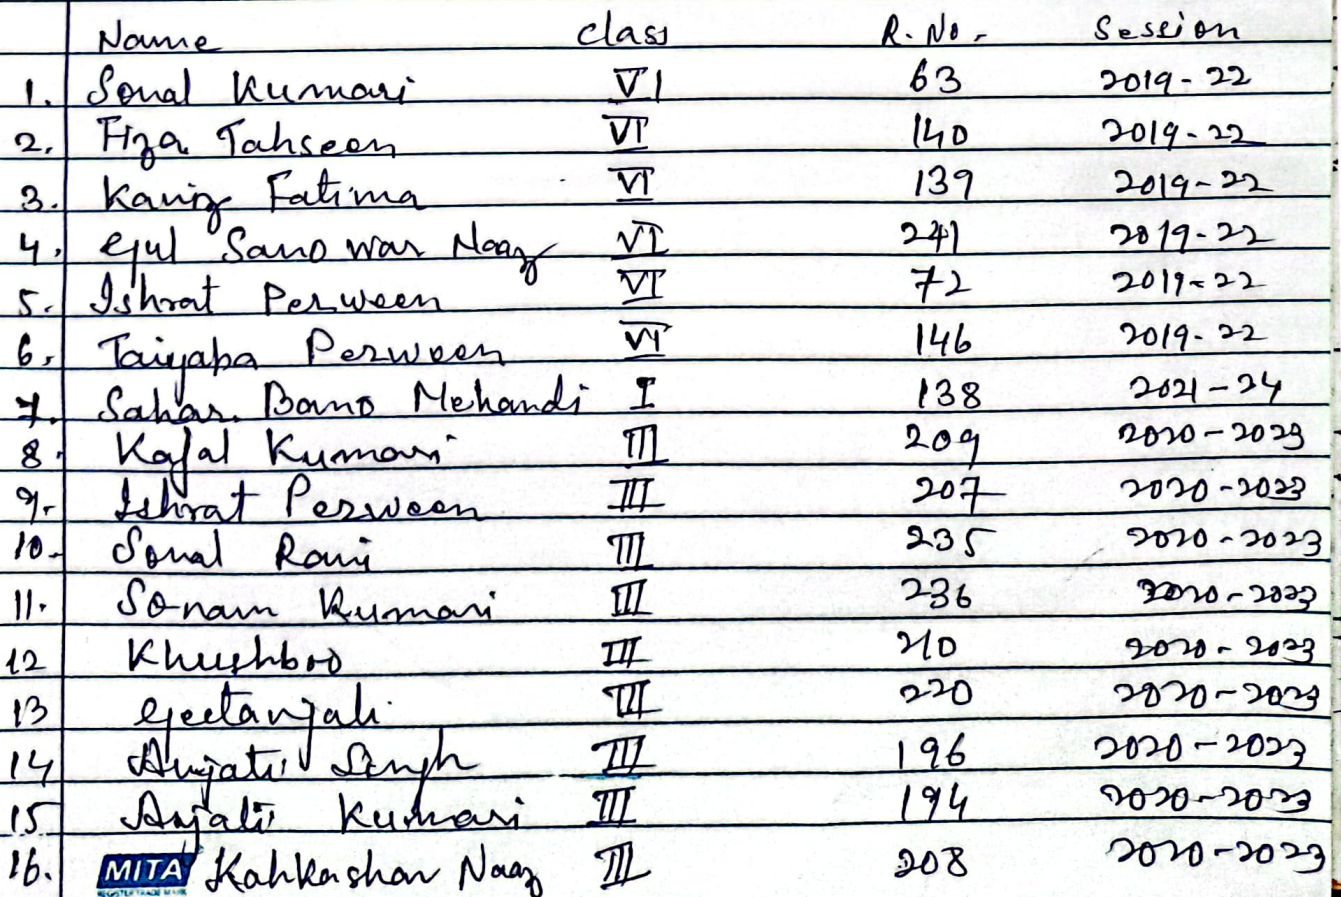 Name Class R. No. Session
1. Sonal Kumari VI 63 2019-22
2. Fiza Tahseen VI 140 2019-22
3. Kaniz Fatima VI 139 2019-22
4. Gul Sanowar Naaz VI 241 2019-22
5. Ishrat Perween VI 72 2019-22
6. Taiyaba Perween VI 146 2019-22
7. Sahar Bano Mehandi I 138 2021-24
8. Kajal Kumari III 209 2020-2023
9. Ishrat Perween III 207 2020-2023
10. Sonal Rani III 235 2020-2023
11. Sonam Kumari III 236 2020-2023
12 Khushboo III 210 2020-2023
13 Geetanjali III 220 2020-2023
14 Anjali Singh III 196 2020-2023
15 Anjali Kumari III 194 2020-2023
16. MITA Kahkashan Naaz III 208 2020-2023